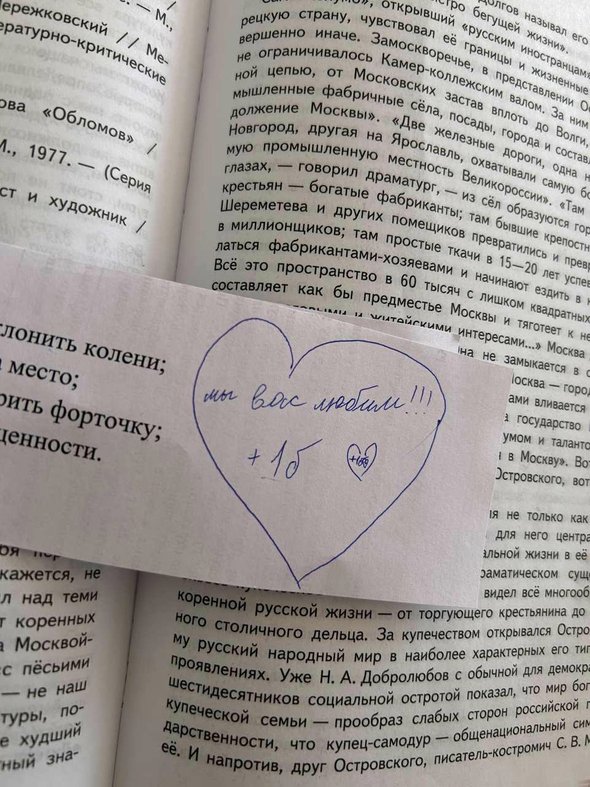 ережковский // Ме-
ературно-критические
ова «Обломов» /
М., 1977. — (Серия
ст и художник /
долгов называл его
открывший «русским иностранцам»
рецкую страну, чувствовал её границы и жизненные
вершенно иначе. Замоскворечье, в представлении Ос
не ограничивалось Камер-коллежским валом. За ним
ной цепью, от Московских застав вплоть до Волги,
мышленные фабричные сёла, посады, города и состав
должение Москвы». «Две железные дороги, одна н
Новгород, другая на Ярославль, охватывали самую бо
мую промышленную местность Великороссии». «Там
глазах, — говорил драматург, — из сёл образуются гор
крестьян — богатые фабриканты; там бывшие крепостн
Шереметева и других помещиков превратились и превр
в миллионщиков; там простые ткачи в 15—20 лет успев
латься фабрикантами-хозяевами и начинают ездить в к
Всё это пространство в 60 тысяч с лишком квадратных
составляет как бы предместье Москвы и тяготеет к не
и житейскими интересами...» Москва
на не замыкается в с
Москва — город
ами вливается
а государство
умом и таланто
н в Москву». Вот
Островского, вот
клонить колени;
а место;
рить форточку;
ценности.
мы вас любим!!!
+1б
я не только как
для него центра
альной жизни в её
раматическом сущ
видел всё многооб
коренной русской жизни — от торгующего крестьянина до
ного столичного дельца. За купечеством открывался Остро
му русский народный мир в наиболее характерных его тип
проявлениях. Уже Н. А. Добролюбов с обычной для демокра
шестидесятников социальной остротой показал, что мир бог
купеческой семьи — прообраз слабых сторон российской г
дарственности, что купец-самодур — общенациональный сим
её. И напротив, друг Островского, писатель-костромич С. В. М
кажется, не
л над теми
т коренных
а Москвой-
с пёсьими
— не наш
туры, по-
е худший
тный зна-